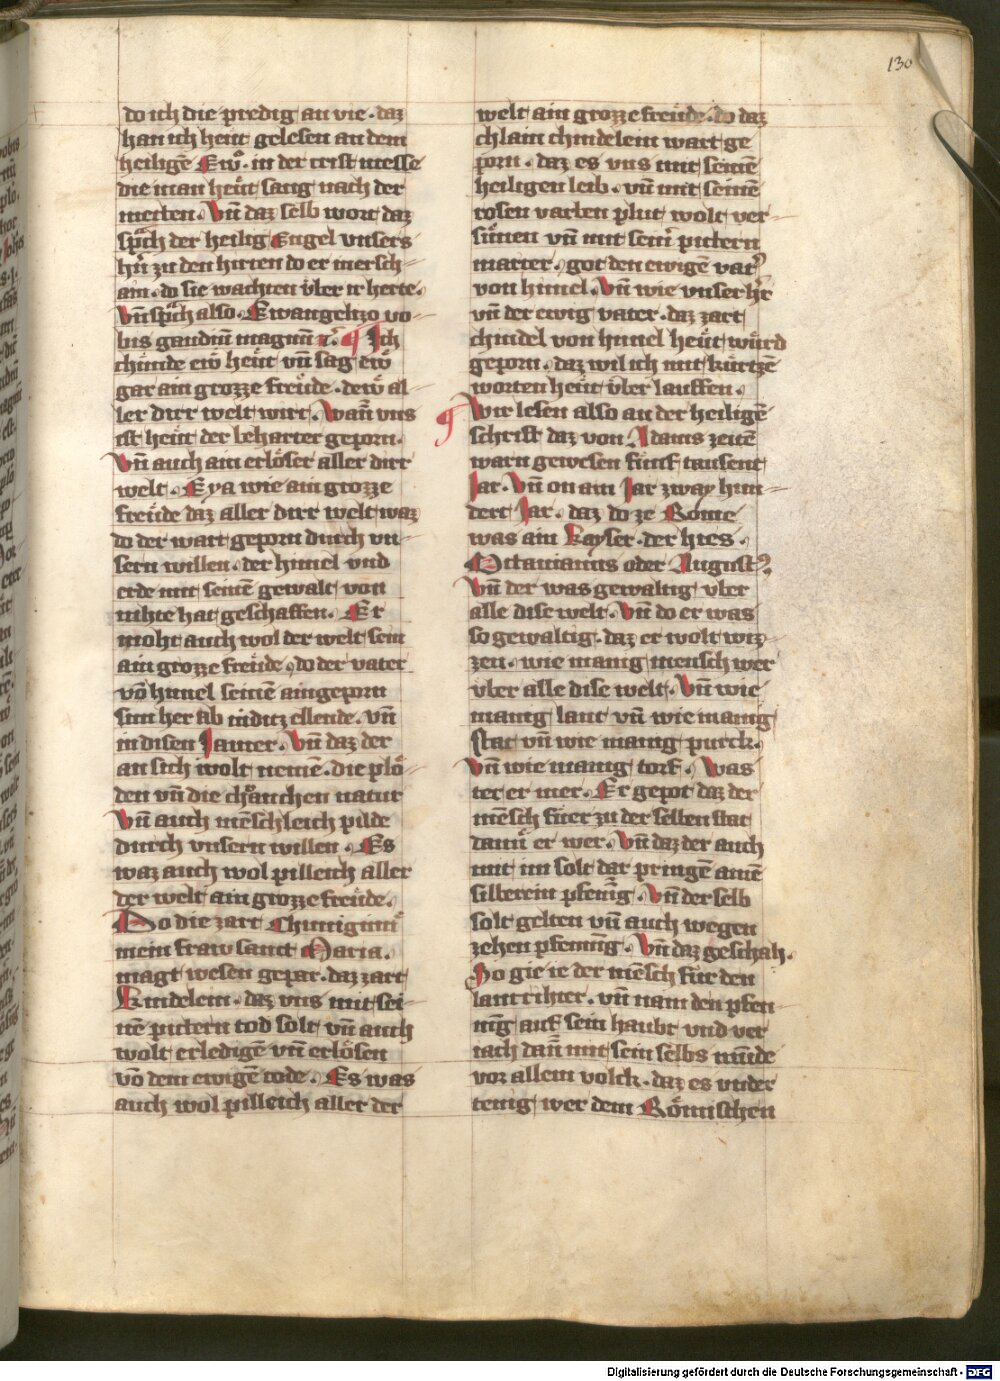 130
do ich die predig an vie · daz
han ich heut gelesen an dem
heiligē Ewͦ · in der crist messe
die man heut sang nach der
metten · Vn̄ daz selb wort daz
sprach der heilig Engel vnsers
hr̄n zu den hirten do er in ersch-
ain · do sie wachten vͤber ir herte ·
vn̄ sprach also · Ewangelizo vo
bis gaudiū magnū ⁊c̄ · ¶ Ich
chünde ew heüt vn̄ sag eẅ
gar ain grozze freüde · deẅ al
ler dirr welt wirt · Wan̄ vns
ist heüt der behalter geporn ·
Vn̄ auch ain erlöser aller dirr
welt · Eya wie ain grozze
freüde daz aller dirr welt waz
do der wart geporn durch vn-
sern willen · der himel vnd
erde mit seinē gewalt von
nihte hat geschaffen · Er
moht auch wol der welt sein
ain grozze freüde · do der vater
vō himel seinē aingeporn
sun her ab in ditz ellende · vn̄
in disen Jamer · Vn̄ daz der
an sich wolt nemē · die plö-
den vn̄ die chranchen natur
Vn̄ auch mēschleich pilde
durch vnsern willen · Es
waz auch wol pilleich aller
der welt ain grozze freüde ·
Do die zart Chuniginn
mein fraw sanct Maria ·
magt wesen gepar · daz zart
kindelein · daz vns mit sei-
nē pittern tod solt vn̄ auch
wolt erledigē vn̄ erlösen
vō dem ewigē tode · Es was
auch wol pilleich aller der
welt ain grozze freüde · do daz
chlain chindelein wart ge
porn · daz es vns mit seinē
heiligen leib · vn̄ mit seinē
rosen varben plut wolt ver-
sünen vn̄ mit seinr pittern
marter · got den ewigē vatr
von himel · Vn̄ wie vnser hr̄r
vn̄ der ewig vater · daz zart
chindel von himel heüt würd
geporn · daz wil ich mit kürtzē
worten heüt vber lauffen ·
¶ Wir lesen also an der heiligē
schrift daz von Adams zeitē
warn gewesen fünf tausent
Jar · Vn̄ on ain Jar zway hun-
dert Jar · daz do ze Rome
was ain kayser · der hies ·
Octauianus oder Augustꝰ
Vn̄ der was gewaltig vber
alle dise welt · Vn̄ do er was
so gewaltig · daz er wolt wiz-
zen · wie manig mensch wer
vber alle dise welt · Vn̄ wie
manig lant vn̄ wie manig
stat vn̄ wie manig purck ·
Vn̄ wie manig torf · Was
ter er mer · Er gepot daz der
mēsch füer zu der selben stat
dann er wer · Vn̄ daz der auch
mit im solt dar pringē ainē
silberein pfenīg · Vn̄ der selb
solt gelten vn̄ auch wegen
zehen pfennīg · Vn̄ daz geschah ·
So gie ie der mēsch für den
lantrihter · vn̄ nam den pfen-
nīg auf sein haubt vnd ver
iach dan̄ mit sein selbs münde
vor allem volck · daz es vnder
tenig wer dem Römischen
Digitalisierung gefördert durch die Deutsche Forschungsgemeinschaft - DFG